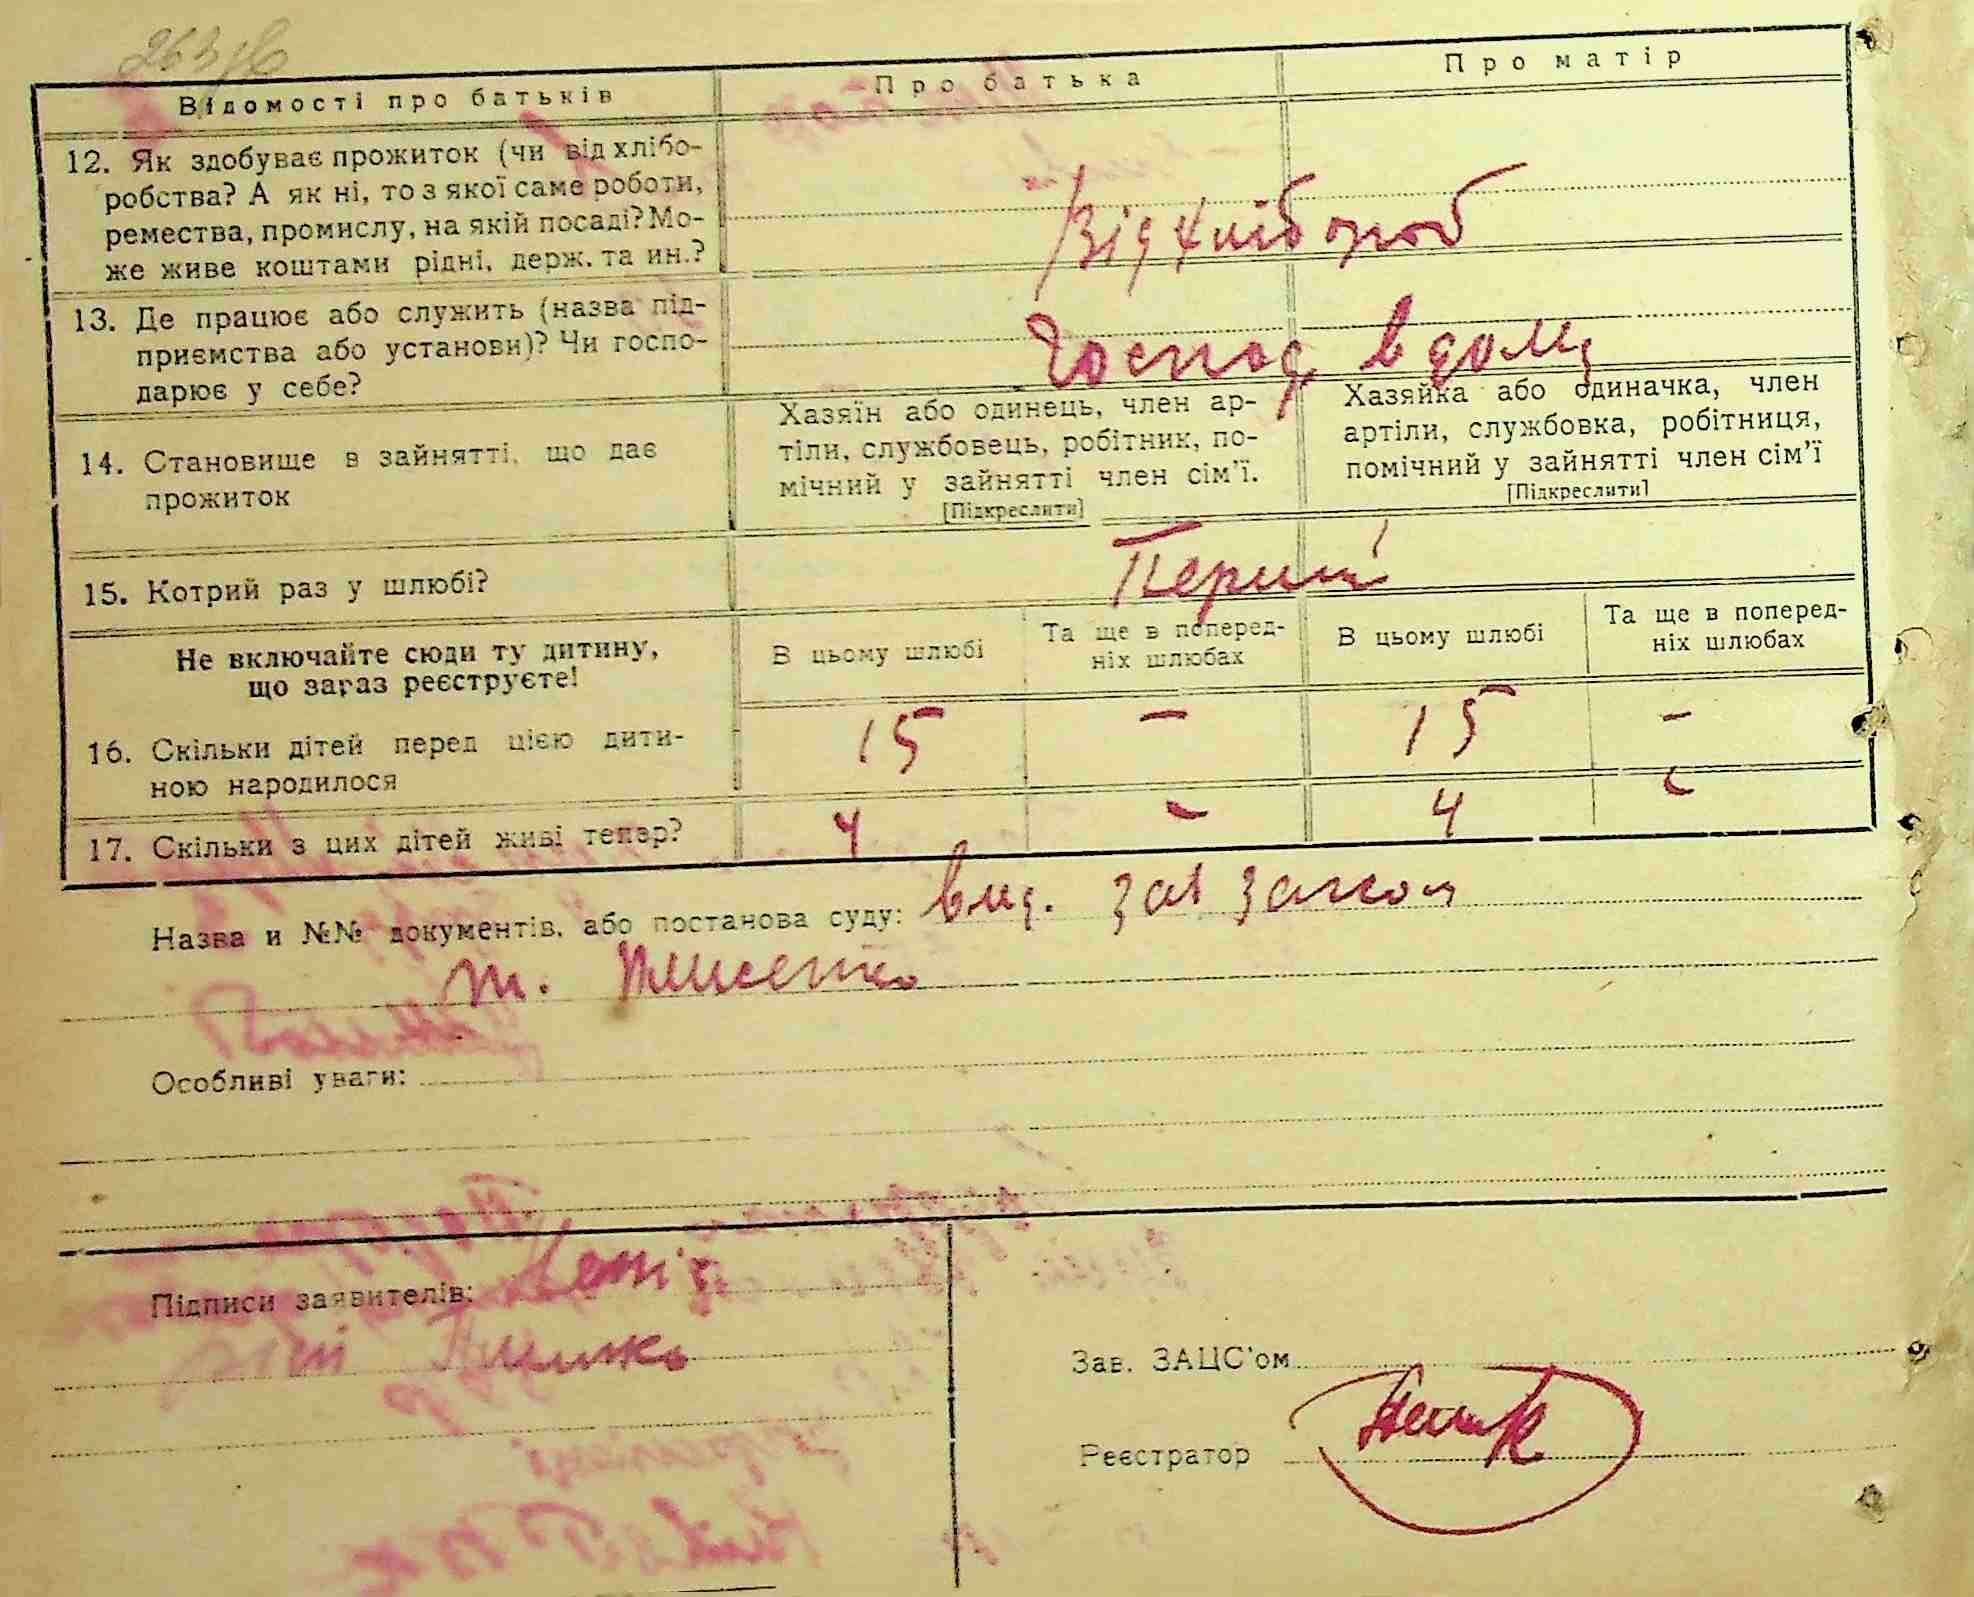 263
Відомості про батьків
Про батька
Про матір
12. Як здобуває прожиток (чи від хлібо-
робства? А як ні, то з якої саме роботи,
ремества, промислу, на якій посаді? Мо-
же живе коштами рідні, держ. та ин.?
Від хлібороб
13. Де працює або служить (назва під-
приємства або установи)? Чи госпо-
дарює у себе?
Господ. в дому
14. Становище в зайнятті, що дає
прожиток
Хазяїн або одинець, член ар-
тіли, службовець, робітник, по-
мічний у зайнятті член сім'ї.
[Підкреслити]
Хазяйка або одиначка, член
артіли, службовка, робітниця,
помічний у зайнятті член сім'ї
[Підкреслити]
15. Котрий раз у шлюбі?
Перший
Не включайте сюди ту дитину,
що зараз реєструєте!
В цьому шлюбі
Та ще в поперед-
ніх шлюбах
В цьому шлюбі
Та ще в поперед-
ніх шлюбах
16. Скільки дітей перед цією дити-
ною народилося
15 - 15 -
17. Скільки з цих дітей живі тепер?
4 - 4 -
Назва и №№ документів, або постанова суду: вид. заг
т.
Особливі уваги:
Підписи заявителів:
Зав. ЗАЦС'ом
Реєстратор